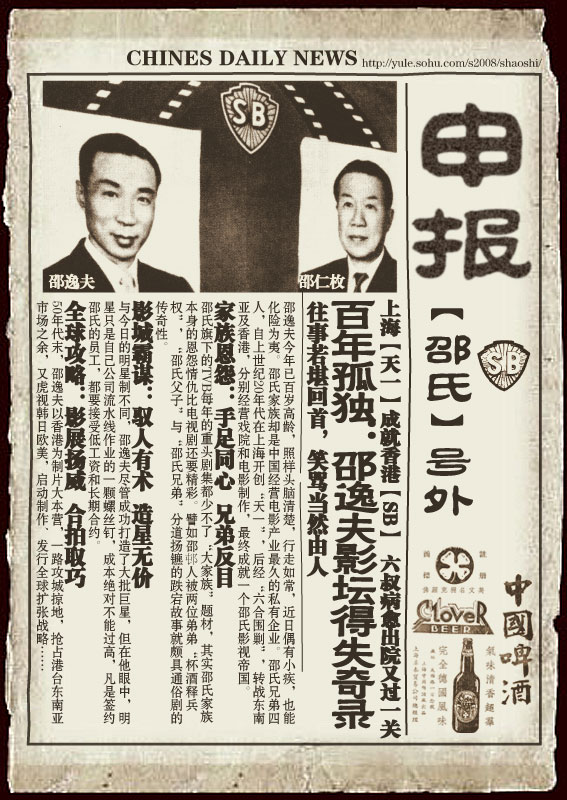 CHINES DAILY NEWS http://yule.sohu.com/s2008/shaoshi/
申报
【邵氏】号外
SB
SB
邵逸夫
邵仁枚
上海【天一】成就香港【SB】 六叔病愈出院又过一关
百年孤独:邵逸夫影坛得失奇录
往事若堪回首,笑骂当然由人
邵逸夫今年已百岁高龄,照样头脑清楚,行走如常,近日偶有小疾,也能
化险为夷。邵氏家族却是中国经营电影产业最久的私有企业。邵氏兄弟四
人,自上世纪20年代在上海开创“天一”,后经“六合围剿”,转战东南
亚及香港,分别经营戏院和电影制作,最终成就一个邵氏影视帝国。
家族恩怨:手足同心 兄弟反目
邵氏旗下的TVB每年的重头剧集都少不了“大家族”题材,其实邵氏家族
本身的恩怨情仇比电视剧还要精彩。譬如邵邨人被两位弟弟“杯酒释兵
权”,“邵氏父子”与“邵氏兄弟”分道扬镳的跌宕故事就颇具通俗剧的
传奇性。
影城霸谋:驭人有术 造星无价
与今日的明星制不同,邵逸夫尽管成功打造了大批巨星,但在他眼中,明
星只是自己公司流水线作业的一颗螺丝钉,成本绝对不能过高,凡是签约
邵氏的员工,都要接受低工资和长期合约。
全球攻略:影展扬威 合拍取巧
50年代末,邵逸夫以香港为制片大本营,一路攻城掠地,抢占港台东南亚
市场之余,又虎视韩日欧美,启动制作、发行全球扩张战略……
中國啤酒
Clover
BEER
氣味清香
完全德國風味